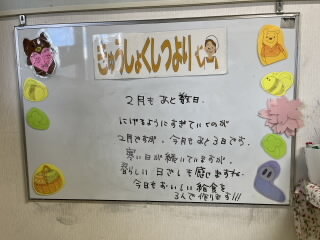 きゅうしょくしつより
2月もあと数日.
にげるようにすぎていくのが
2月ですが、今月もあと3日です.
寒い日が続いていますが、
春らしい日ざしも感じますね.
今日もおいしい給食を
みんで作ります!!!